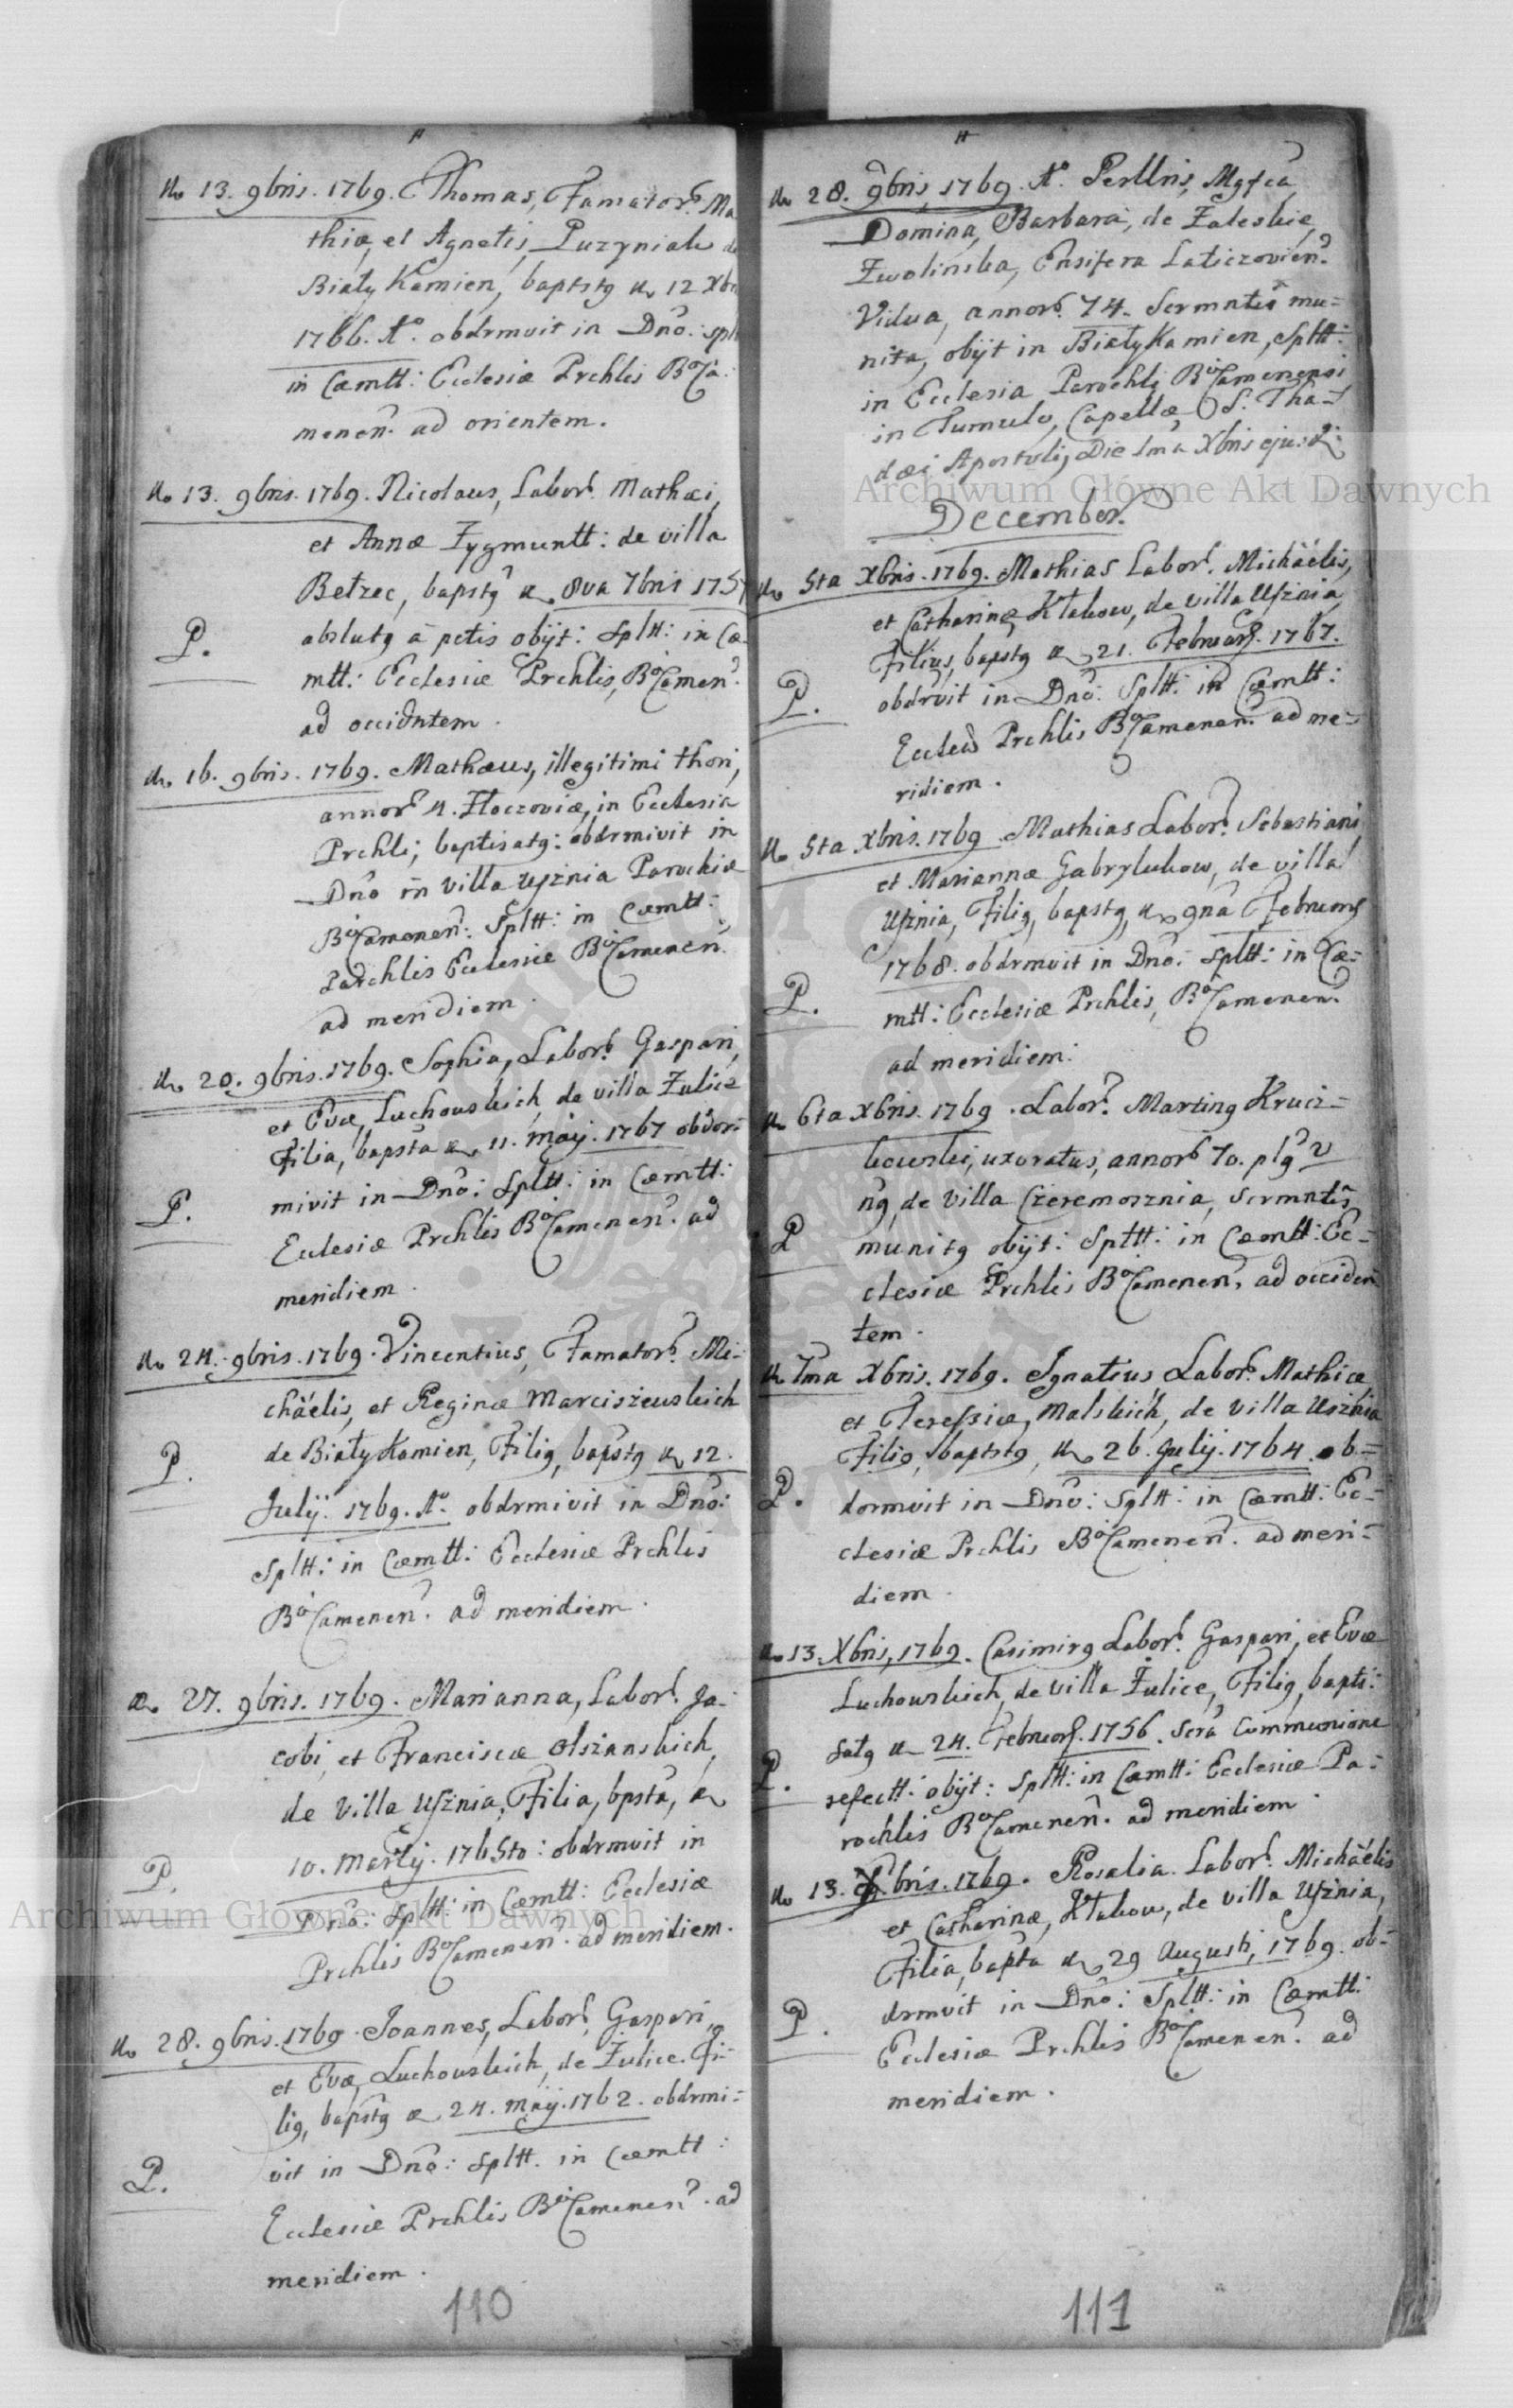 13. 9bris. 1769. Thomas, Famator. Ma
thiæ, et Agnetis, Puzyniak de
Biały Kamien, baptstg 12 Xbr
1766. A°. obdrmuit in Dno: splt
in Cœmtt: Ecclesiæ Prchlis BoCa:
menen. ad orientem.
13. 9bris. 1769. Nicolaus, Labor. Mathæi,
et Annæ Zygmuntt: de villa
Bełzec, bapstg 8va 7bris 1757
P.
abslutg à pctis obijt: Spltt: in Cœ-
mtt: Ecclesiæ Prchlis, BoCamen.
ad occidntem.
16. 9bris. 1769. Mathæus, illegitimi thori,
annor 4. Złoczoviæ, in Ecclesia
Prchli; baptisatg: obdrmivit in
Dno in villa Usznia Parochiæ
BoCamenen: Spltt: in Cœmtt:
Parchlis Ecclesiæ BoCamenen.
ad meridiem.
20. 9bris. 1769. Sophia, Labor. Gaspari,
et Evæ, Luchouskich, de villa Żulice
Filia, bapsta 11. Maij. 1767 obdor:
P.
mivit in Dno: Spltt: in Cœmtt:
Ecclesiæ Prchlis BoCamenen. ad
meridiem.
24. 9bris. 1769. Vincentius, Famator. Mi:
chäelis, et Reginæ Marciszeuskich
P.
de Biały Kamien, Filig, bapstg 12.
Julij. 1769. A°. obdrmivit in Dno:
Spltt: in Cœmtt: Ecclesiæ Prchlis
BoCamenen. ad meridiem.
27. 9bris. 1769. Marianna, Labor. Ja:
cobi, et Franciscæ Olszanskich,
de Villa Usznia, Filia, bpsta,
P.
10. Martij. 1765to: obdrmuit in
Dno: Spltt: in Cœmtt: Ecclesiæ
Prchlis BoCamenen. ad meridiem.
28. 9bris. 1769. Joannes, Labor. Gaspari,
et Evæ, Luchouskich, de Żulice. Fi-
lig, bapstg 24. Maij. 1762. obdrmi:
P.
vit in Dno: Spltt. in Cœmtt:
Ecclesiæ Prchlis BoCamenen. ad
meridiem.
110
28. 9bris, 1769. A°. Perllris, Mgfca
Domina, Barbara, de Zaleskie
Zwolinska, Ensifera Laticzovien.
Vidua, annor. 74. Scrmntis mu-
nita, obijt in Biały Kamien, Spltt:
in Ecclesia Parochli BoCamenensi
in Tumulo, Capellæ S. Tha-
dæi Apostoli, Die 1ma Xbris ejus:d:
December.
5ta Xbris. 1769. Mathias Labor. Michäelis,
et Catharinæ Kłakow, de villa Usznia
Filius, bapstg 21. Februar. 1767.
P.
obdrvit in Dno: Spltt: in Cœmtt:
Eccleæ Prchlis BoCamenen. ad me-
ridiem.
5ta Xbris. 1769. Mathias Labor. Sebastiani
et Mariannæ Gabrylukow, de villa
Usznia, Filig, bapstg, 9na Februarij
P.
1768. obdrmuit in Dno: Spltt: in Cœ-
mtt: Ecclesiæ Prchlis, BoCamenen.
ad meridiem.
6ta Xbris. 1769. Labor. Marting Krusz-
kouski, uxoratus, annor 70. plg v
P
ng, de villa Czeremosznia, Scrmntis
munitg obijt: Spltt: in Cœmtt: Ec-
clesiæ Prchlis BoCamenen. ad occiden
tem.
7ma Xbris. 1769. Ignatius Labor. Mathiæ
et Teressiæ, Malskich, de villa Uszhia
Filig, baptstg, 26. Julij. 1764. ob-
P.
dormuit in Dno: Spltt: in Cœmtt: Ec-
clesiæ Prchlis BoCamenen. ad meri-
diem.
13. Xbris, 1769. Casimirg Labor. Gaspari, et Evæ
Luchouskich, de villa Żulice, Filig, bapti:
satg 24. Februar. 1756. Scra Communione
P.
refectt: obijt: Spltt: in Cœmtt: Ecclesiæ Pa:
rochlis BoCamenen. ad meridiem.
13. Xbris. 1769. Rosalia. Labor. Michäelis
et Catharinæ, Kłakow, de villa Uszńia,
Filia, bapta 29 Augusti, 1769. ob-
P.
drmuit in Dno: Spltt: in Cœmtt:
Ecclesiæ Prchlis BoCamenen. ad
meridiem.
111
Archiwum Główne Akt Dawnych
Archiwum Główne Akt Dawnych